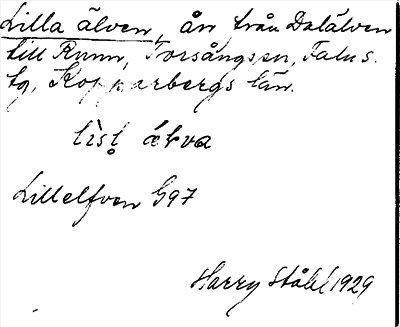 Lilla älven, ån från Dalälven
till Runn, Torsångs sn, Falu s.
tg, Kopparbergs län.
Lillelfven G97
Harry Ståhl 1929